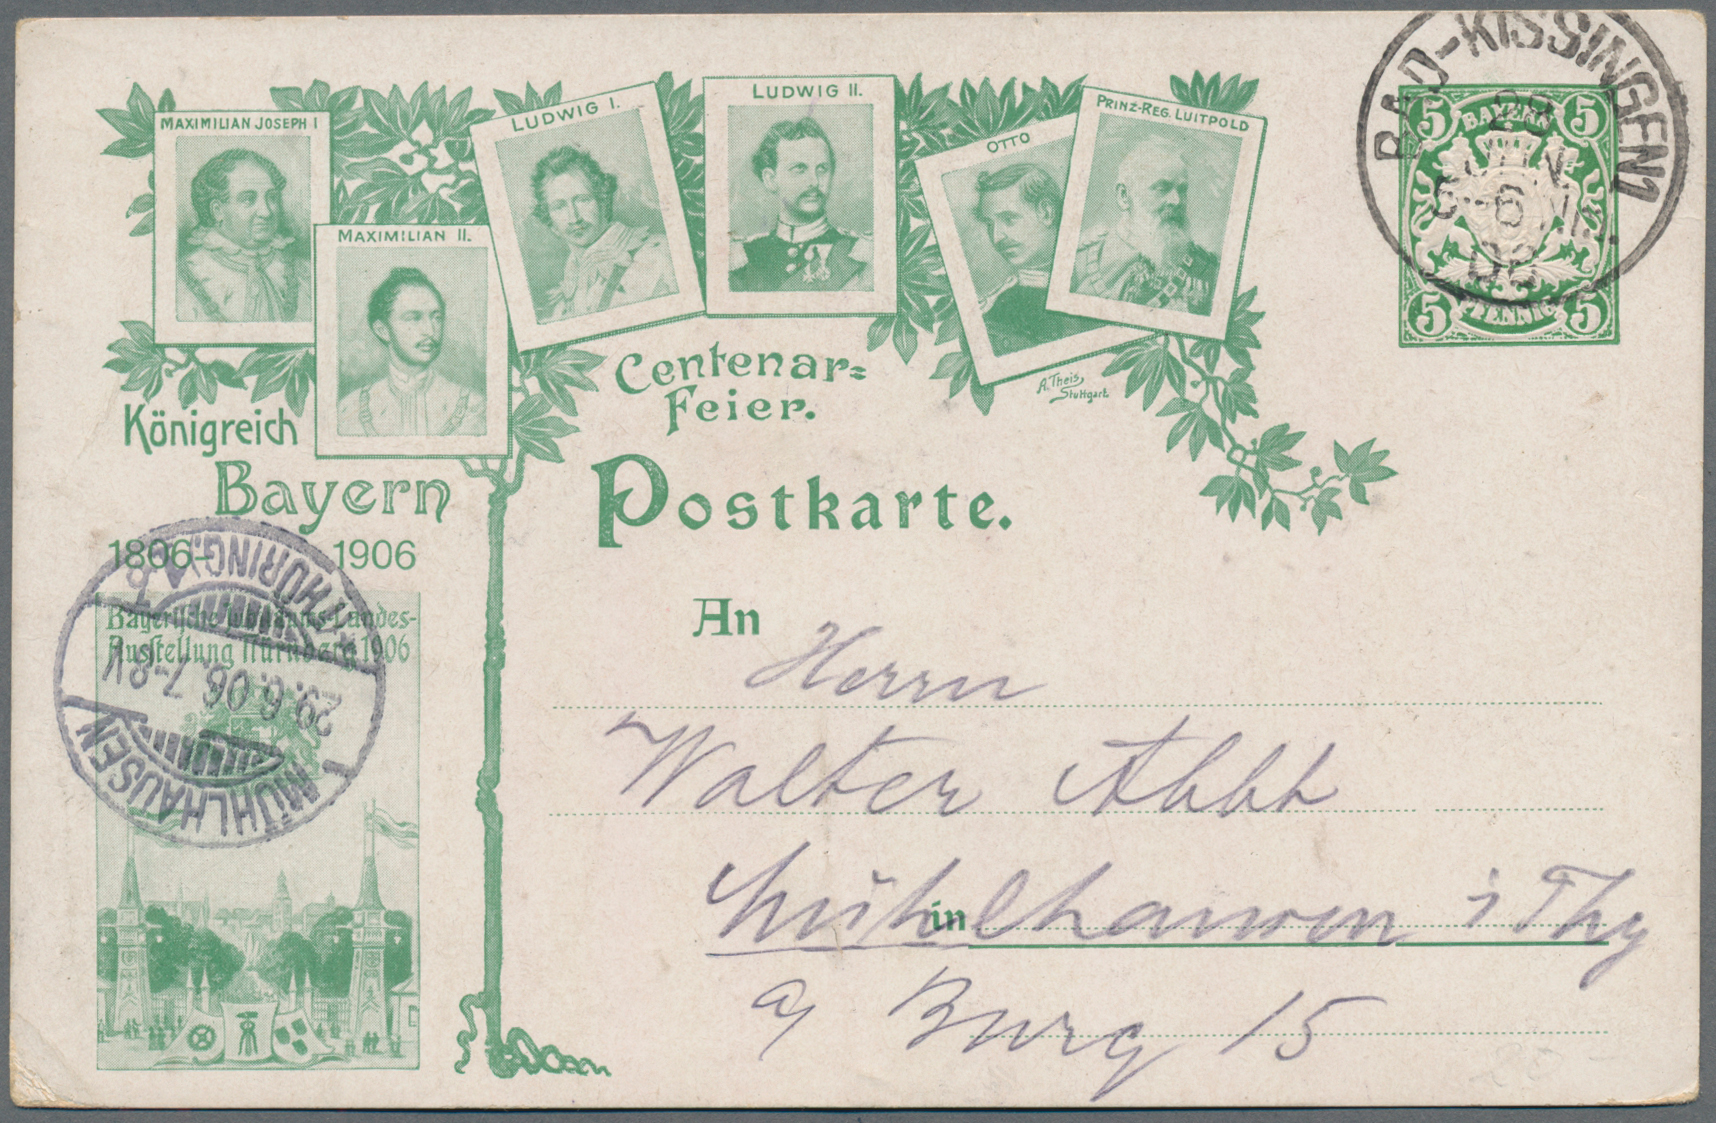 MAXIMILIAN JOSEPH I
MAXIMILIAN II.
LUDWIG I.
LUDWIG II.
OTTO
PRINZ-REG. LUITPOLD
A. Theis,
Stuttgart.
BAD-KISSINGEN 1
28
JUN.
6
06
5 BAYERN 5
5 PFENNIG 5
Centenar=
Feier.
Königreich
Bayern
1806- 1906
Postkarte.
Bayerische Jubiläums-Landes-
Ausstellung Nürnberg 1906
MÜHLHAUSEN
29.6.06. 7-8V
(THÜRING.)
An
Herrn
Walter
in
Mühlhausen i Thg
a/ Burg 15